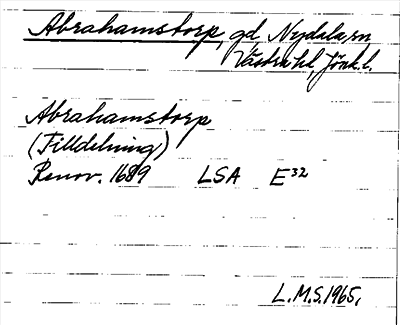 Abrahamstorp, gd Nydala sn
Västra hd, Jönk.l.
Abrahamstorp
(Tilldelning)
Renov. 1689 LSA E32
L.M.S. 1965.